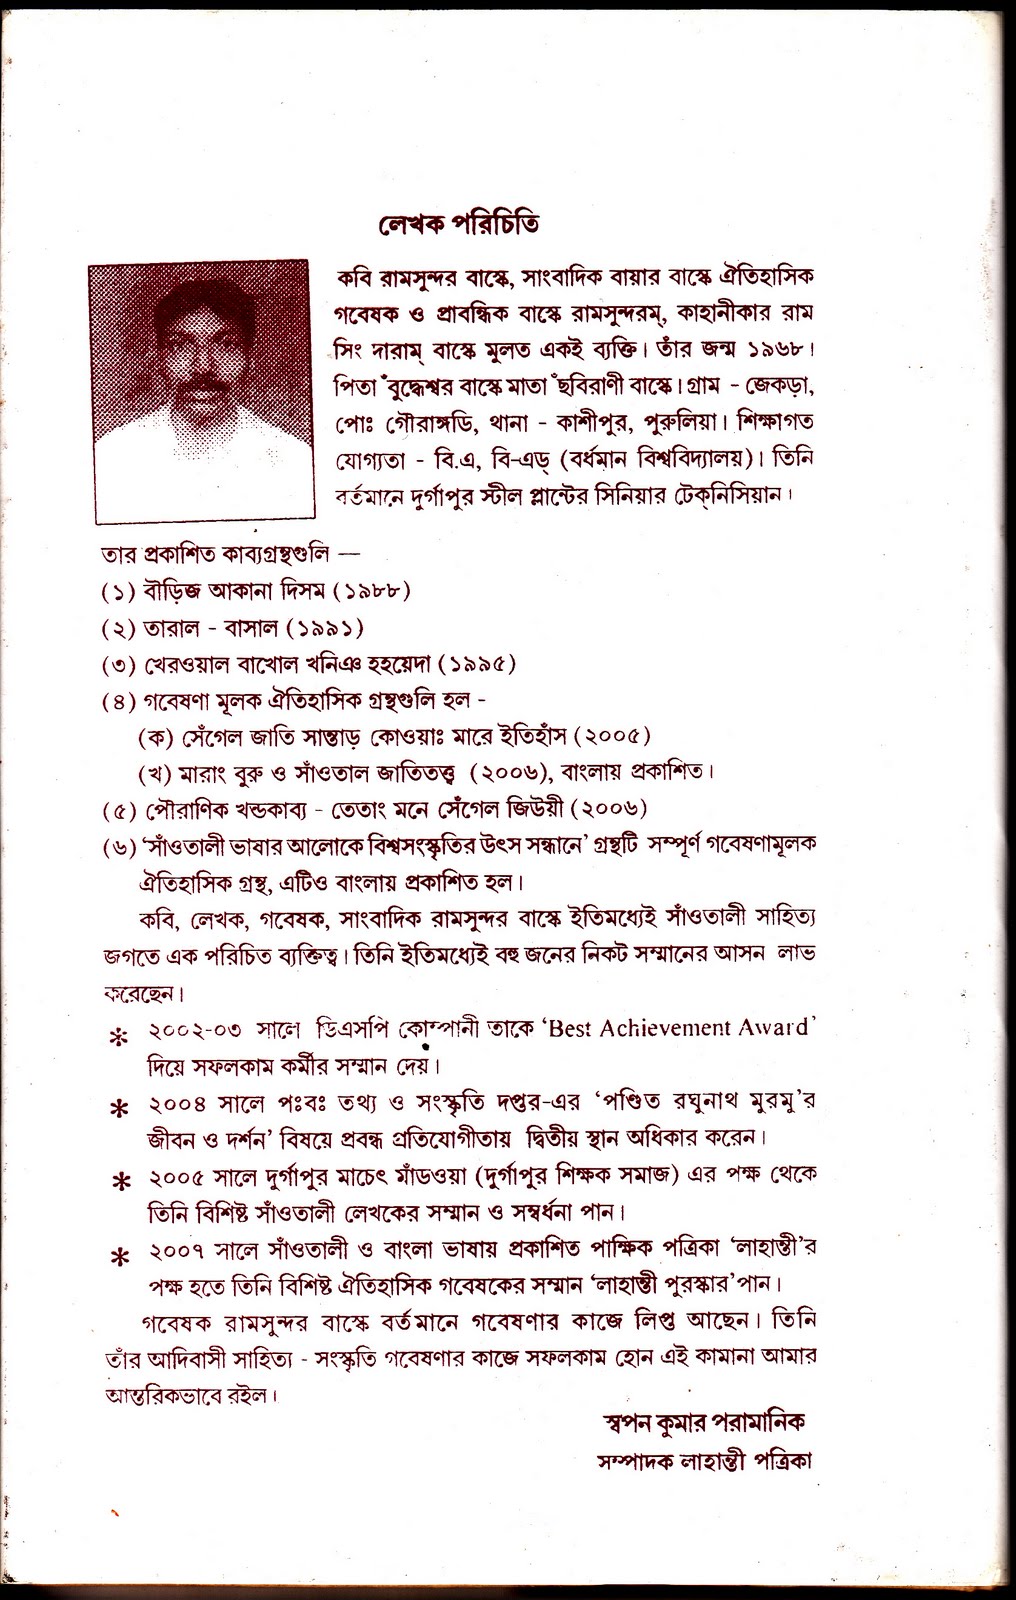 লেখক পরিচিতি
কবি রামসুন্দর বাস্কে, সাংবাদিক বায়ার বাস্কে ঐতিহাসিক
গবেষক ও প্রাবন্ধিক বাস্কে রামসুন্দরম্, কাহানীকার রাম
সিং দারাম্ বাস্কে মুলত একই ব্যক্তি। তাঁর জন্ম ১৯৬৮।
পিতা ঁবুদ্ধেশ্বর বাস্কে মাতা ঁছবিরাণী বাস্কে। গ্রাম - জেকড়া,
পোঃ গৌরাঙ্গডি, থানা - কাশীপুর, পুরুলিয়া। শিক্ষাগত
যোগ্যতা - বি.এ, বি-এড্ (বর্ধমান বিশ্ববিদ্যালয়)। তিনি
বর্তমানে দুর্গাপুর স্টীল প্লান্টের সিনিয়ার টেক্‌নিসিয়ান।
তার প্রকাশিত কাব্যগ্রন্থগুলি —
(১) বীড়িজ আকানা দিসম (১৯৮৮)
(২) তারাল - বাসাল (১৯৯১)
(৩) খেরওয়াল বাখোল খনিঞ হহয়েদা (১৯৯৫)
(৪) গবেষণা মূলক ঐতিহাসিক গ্রন্থগুলি হল -
(ক) সেঁগেল জাতি সান্তাড় কোওয়াঃ মারে ইতিহাঁস (২০০৫)
(খ) মারাং বুরু ও সাঁওতাল জাতিতত্ত্ব (২০০৬), বাংলায় প্রকাশিত।
(৫) পৌরাণিক খন্ডকাব্য - তেতাং মনে সেঁগেল জিউয়ী (২০০৬)
(৬) ‘সাঁওতালী ভাষার আলোকে বিশ্বসংস্কৃতির উৎস সন্ধানে’ গ্রন্থটি সম্পূর্ণ গবেষণামূলক
ঐতিহাসিক গ্রন্থ, এটিও বাংলায় প্রকাশিত হল।
কবি, লেখক, গবেষক, সাংবাদিক রামসুন্দর বাস্কে ইতিমধ্যেই সাঁওতালী সাহিত্য
জগতে এক পরিচিত ব্যক্তিত্ব। তিনি ইতিমধ্যেই বহু জনের নিকট সম্মানের আসন লাভ
করেছেন।
* ২০০২-০৩ সালে ডিএসপি কোম্পানী তাকে ‘Best Achievement Award’
দিয়ে সফলকাম কর্মীর সম্মান দেয়।
* ২০০৪ সালে পঃবঃ তথ্য ও সংস্কৃতি দপ্তর-এর ‘পণ্ডিত রঘুনাথ মুরমু’র
জীবন ও দর্শন’ বিষয়ে প্রবন্ধ প্রতিযোগীতায় দ্বিতীয় স্থান অধিকার করেন।
* ২০০৫ সালে দুর্গাপুর মাচেৎ মাঁডওয়া (দুর্গাপুর শিক্ষক সমাজ) এর পক্ষ থেকে
তিনি বিশিষ্ট সাঁওতালী লেখকের সম্মান ও সম্বর্ধনা পান।
* ২০০৭ সালে সাঁওতালী ও বাংলা ভাষায় প্রকাশিত পাক্ষিক পত্রিকা ‘লাহান্তী’র
পক্ষ হতে তিনি বিশিষ্ট ঐতিহাসিক গবেষকের সম্মান ‘লাহান্তী পুরস্কার’ পান।
গবেষক রামসুন্দর বাস্কে বর্তমানে গবেষণার কাজে লিপ্ত আছেন। তিনি
তাঁর আদিবাসী সাহিত্য - সংস্কৃতি গবেষণার কাজে সফলকাম হোন এই কামানা আমার
আন্তরিকভাবে রইল।
স্বপন কুমার পরামানিক
সম্পাদক লাহান্তী পত্রিকা